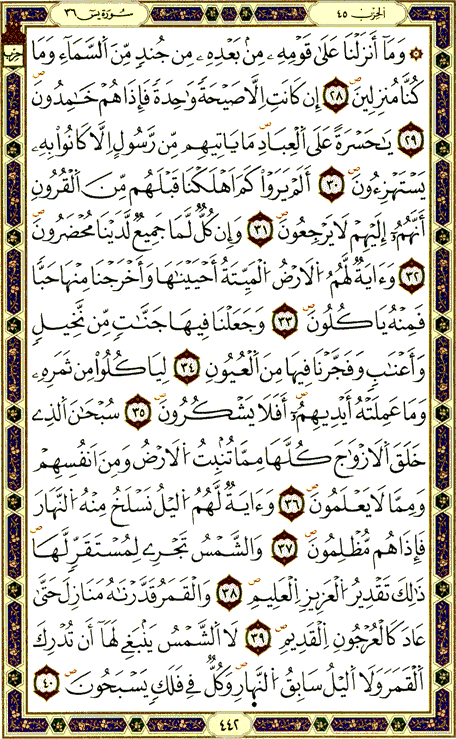 سُورَة يسٓ ٣٦
الحِزب ٤٥
حزب
۞ وَمَآ أَنزَلْنَا عَلَىٰ قَوْمِهِۦ مِنۢ بَعْدِهِۦ مِن جُندٍ مِّنَ اَ۬لسَّمَآءِ وَمَا
كُنَّا مُنزِلِينَ ٢٨ إِن كَانَتِ اِلَّا صَيْحَةً وَٰحِدَةً فَإِذَا هُمْ خَٰمِدُونَ
٢٩ يَٰحَسْرَةً عَلَى اَ۬لْعِبَادِ مَا يَاتِيهِم مِّن رَّسُولٍ اِلَّا كَانُوا۟ بِهِۦ
يَسْتَهْزِءُونَ ٣٠ أَلَمْ يَرَوْا۟ كَمَ اَهْلَكْنَا قَبْلَهُم مِّنَ اَ۬لْقُرُونِ
أَنَّهُمُۥٓ إِلَيْهِمْ لَا يَرْجِعُونَ ٣١ وَإِن كُلٌّ لَّمَا جَمِيعٌ لَّدَيْنَا مُحْضَرُونَ
٣٢ وَءَايَةٌ لَّهُمُ اُ۬لَارْضُ اُ۬لْمَيِّتَةُ أَحْيَيْنَٰهَا وَأَخْرَجْنَا مِنْهَا حَبًّا
فَمِنْهُ يَاكُلُونَ ٣٣ وَجَعَلْنَا فِيهَا جَنَّٰتٍ مِّن نَّخِيلٍ
وَأَعْنَٰبٍ وَفَجَّرْنَا فِيهَا مِنَ اَ۬لْعُيُونِ ٣٤ لِيَاكُلُوا۟ مِن ثَمَرِهِۦ
وَمَا عَمِلَتْهُ أَيْدِيهِمُۥٓ أَفَلَا يَشْكُرُونَ ٣٥ سُبْحَٰنَ اَ۬لذِے
خَلَقَ اَ۬لَازْوَٰجَ كُلَّهَا مِمَّا تُنۢبِتُ اُ۬لَارْضُ وَمِنَ اَنفُسِهِمْ
وَمِمَّا لَا يَعْلَمُونَ ٣٦ وَءَايَةٌ لَّهُمُ اُ۬ليْلُ نَسْلَخُ مِنْهُ اُ۬لنَّهَارَ
فَإِذَا هُم مُّظْلِمُونَ ٣٧ وَالشَّمْسُ تَجْرِے لِمُسْتَقَرٍّ لَّهَا
ذَٰلِكَ تَقْدِيرُ اُ۬لْعَزِيزِ اِ۬لْعَلِيمِ ٣٨ وَالْقَمَرُ قَدَّرْنَٰهُ مَنَازِلَ حَتَّىٰ
عَادَ كَالْعُرْجُونِ اِ۬لْقَدِيمِ ٣٩ لَا اَ۬لشَّمْسُ يَنۢبَغِے لَهَآ أَن تُدْرِكَ
اَ۬لْقَمَرَ وَلَا اَ۬ليْلُ سَابِقُ اُ۬لنَّهَارِ وَكُلٌّ فِے فَلَكٍ يَسْبَحُونَ ٤٠
٤٤٢